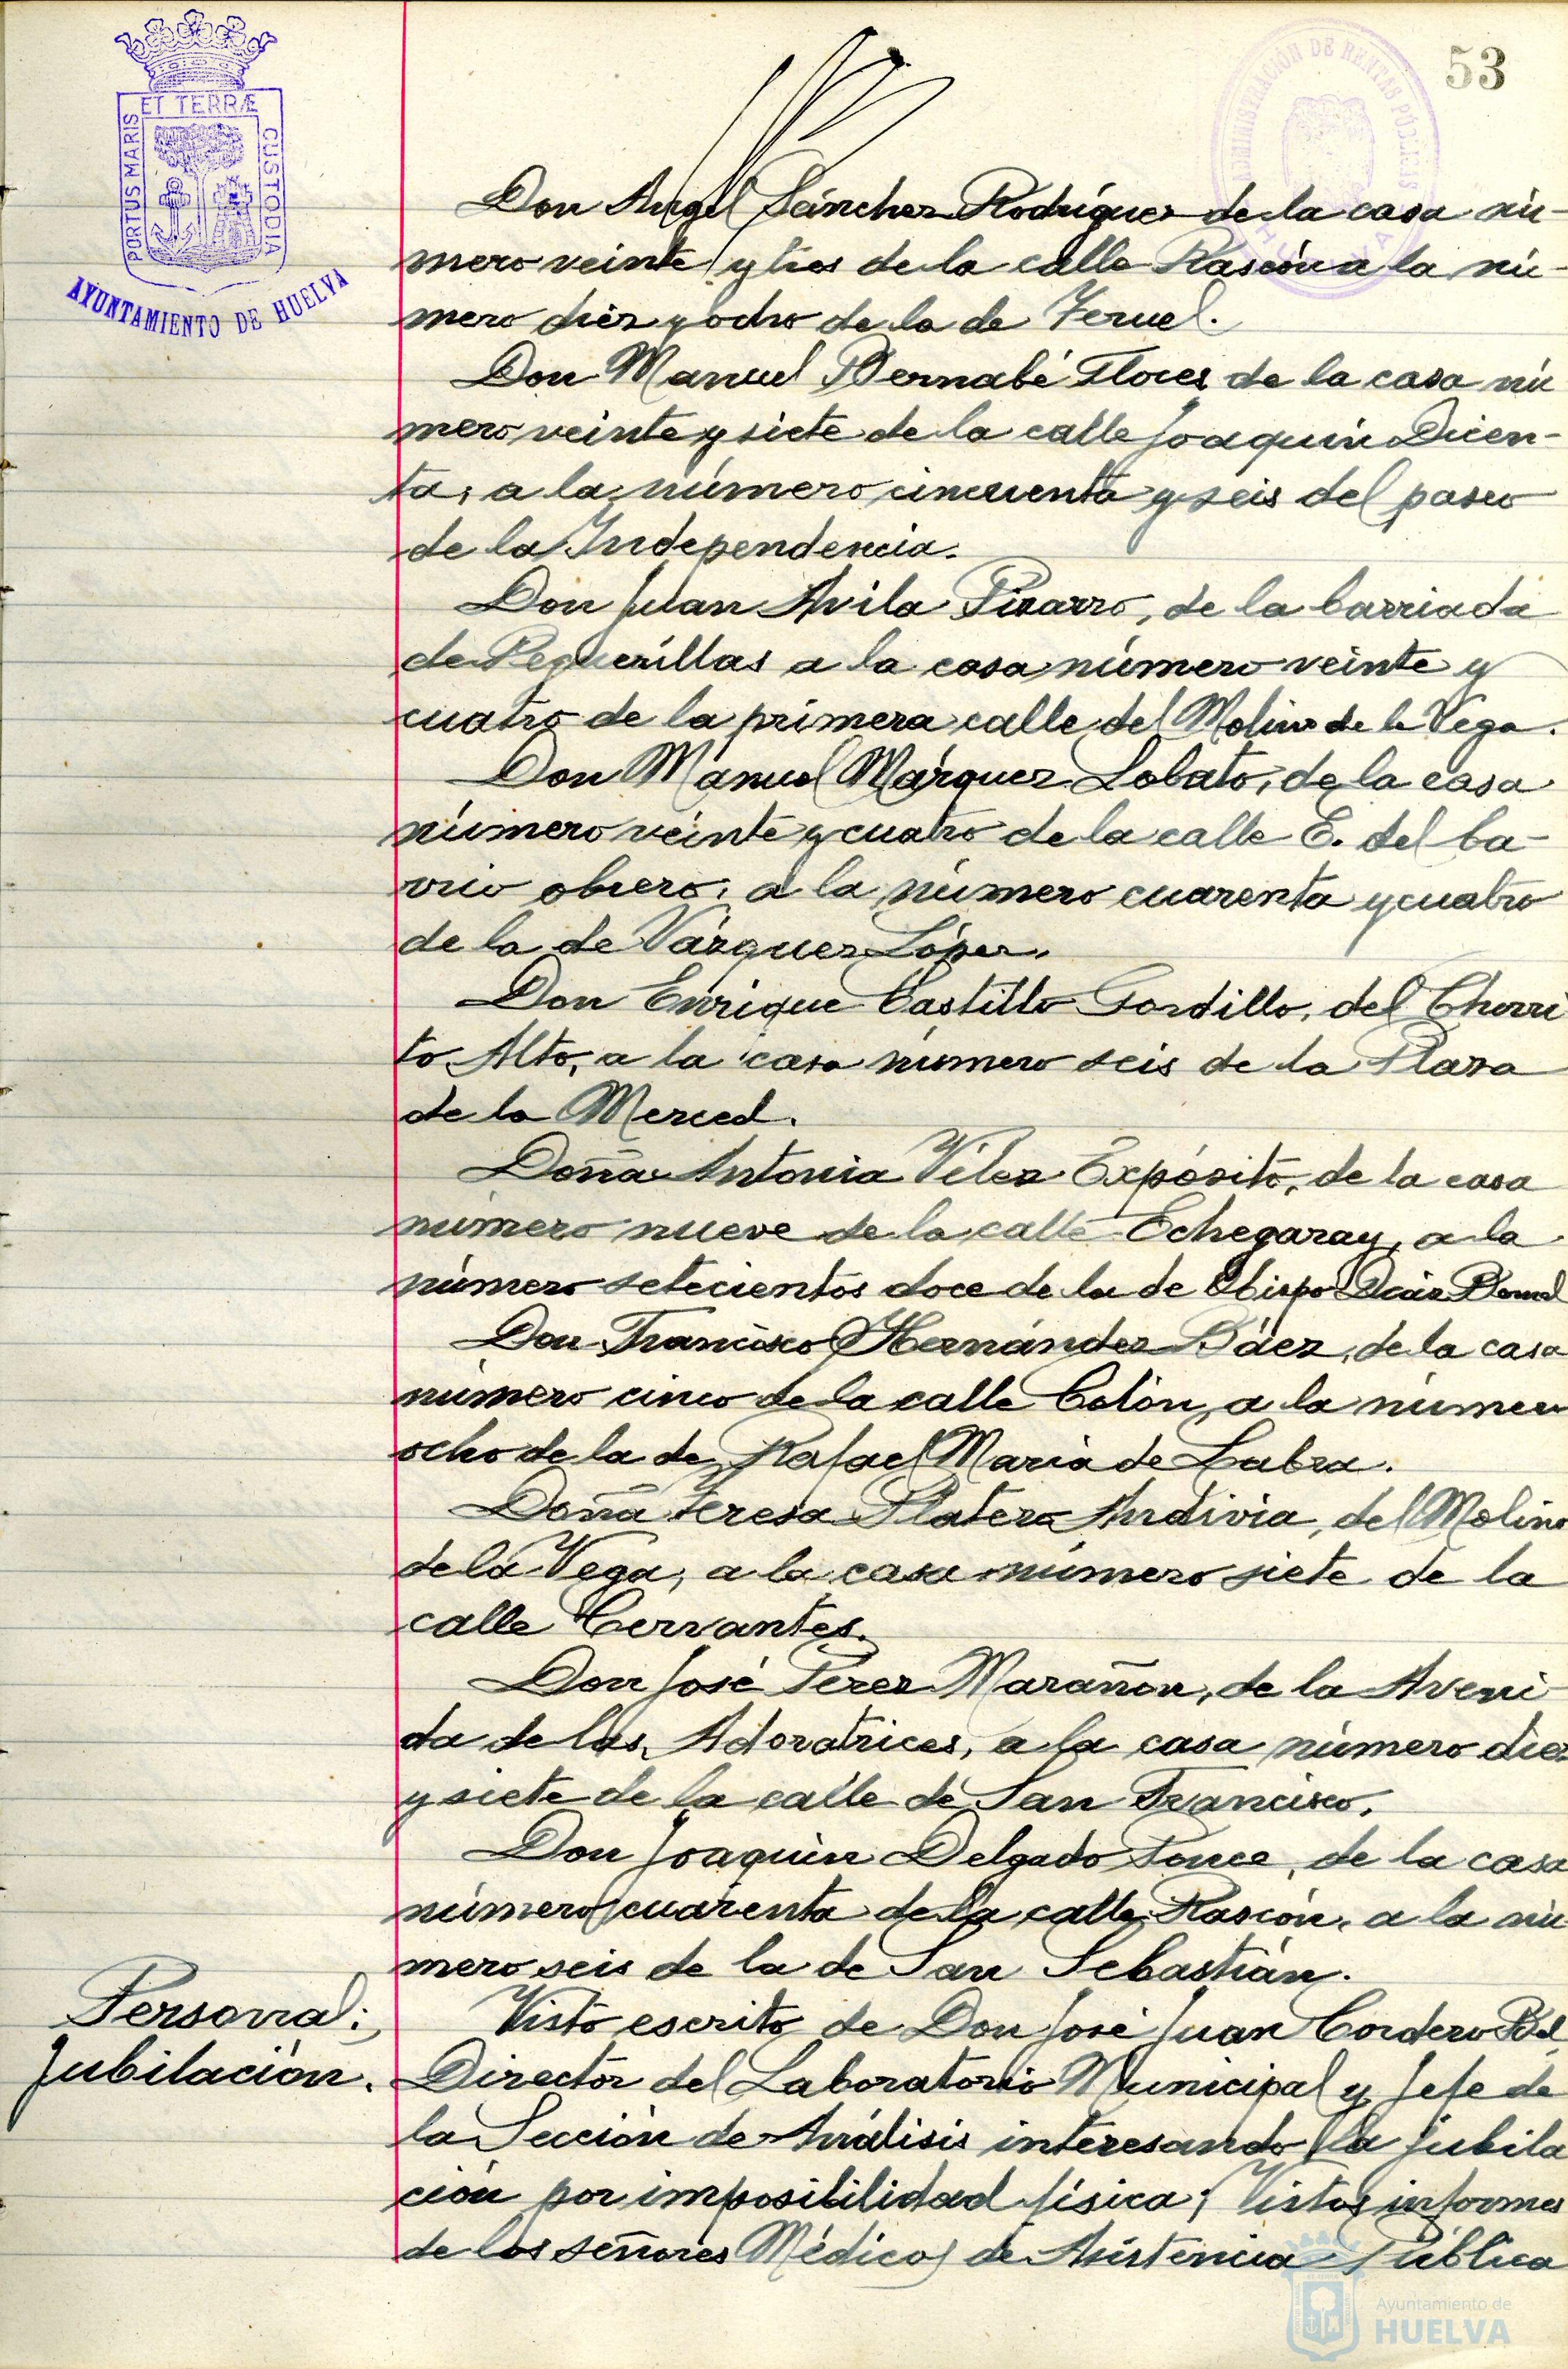 53
ET TERRÆ
PORTUS MARIS
CUSTODIA
AYUNTAMIENTO DE HUELVA
ADMINISTRACIÓN DE RENTAS PÚBLICAS
HUELVA
Don Angel Sánchez Rodríguez de la casa nú-
mero veinte y tres de la calle Rascón a la nú-
mero diez y ocho de la de Teruel.
Don Manuel Bernabé Flores de la casa nú
mero veinte y siete de la calle Joaquín Dicen-
ta, a la número cincuenta y seis del paseo
de la Independencia.
Don Juan Avila Pizarro, de la barriada
de Peguerillas a la casa número veinte y
cuatro de la primera calle del Molino de la Vega.
Don Manuel Márquez Lobato, de la casa
número veinte y cuatro de la calle E. del ba-
rrio obrero, a la número cuarenta y cuatro
de la de Vázquez López.
Don Enrique Castillo Gordillo, del Chorri
to Alto, a la casa número seis de la Plaza
de la Merced.
Doña Antonia Vélez Expósito, de la casa
número nueve de la calle Echegaray, a la
número setecientos doce de la de Obispo Díaz Bernal
Don Francisco Hernández Báez, de la casa
número cinco de la calle Colón, a la número
ocho de la de Rafael María de Labra.
Doña Teresa Platero Andivia, del Molino
de la Vega, a la casa número siete de la
calle Cervantes.
Don José Pérez Marañón, de la Aveni-
da de las Adoratrices, a la casa número diez
y siete de la calle de San Francisco.
Don Joaquín Delgado Ponce, de la casa
número cuarenta de la calle Rascón, a la nú
mero seis de la de San Sebastián.
Personal:
Jubilación.
Visto escrito de Don José Juan Cordero Bel,
Director del Laboratorio Municipal y Jefe de
la Sección de Análisis interesando la jubila
ción por imposibilidad física; Vistos informes
de los señores Médicos de Asistencia Pública
Ayuntamiento de
HUELVA